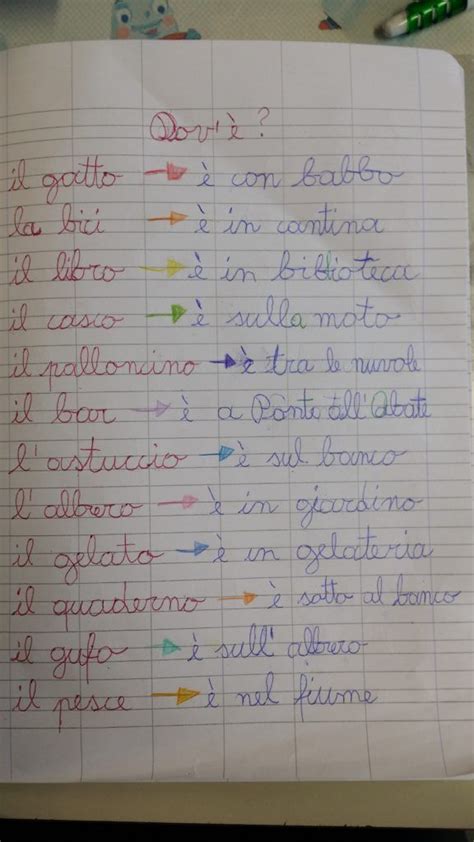 Dov'è?
il gatto → è con babbo
la bici → è in cantina
il libro → è in biblioteca
il casco → è sulla moto
il palloncino → è tra le nuvole
il bar → è a Ponte all'Abate
l'astuccio → è sul banco
l'albero → è in giardino
il gelato → è in gelateria
il quaderno → è sotto al banco
il gufo → è sull'albero
il pesce → è nel fiume